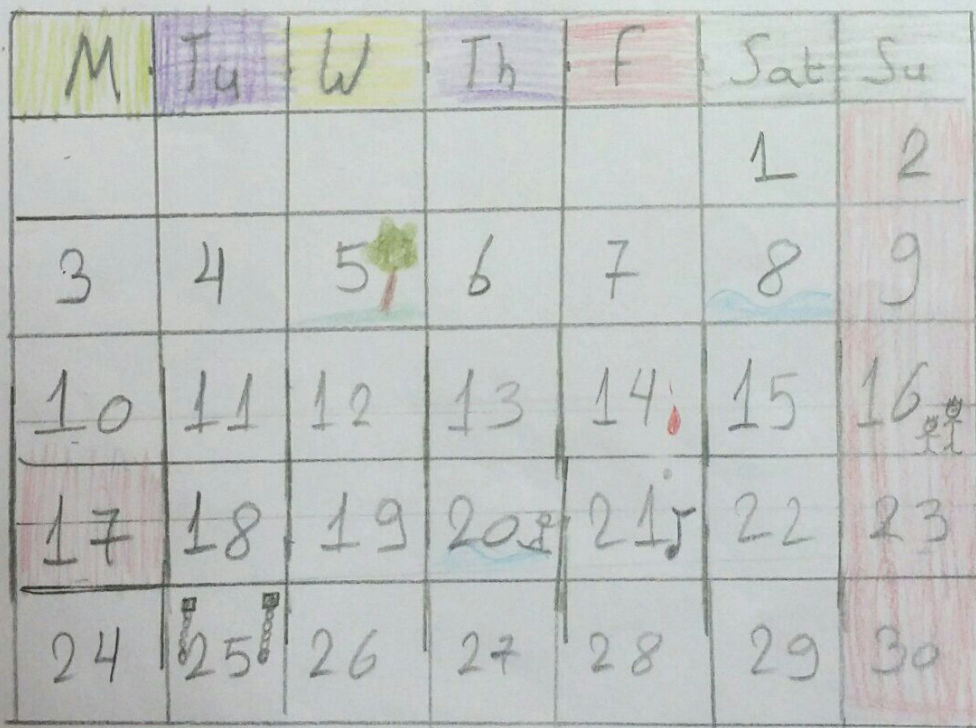 M Tu W Th F Sat Su
1 2
3 4 5 6 7 8 9
10 11 12 13 14 15 16
17 18 19 20 21 22 23
24 25 26 27 28 29 30